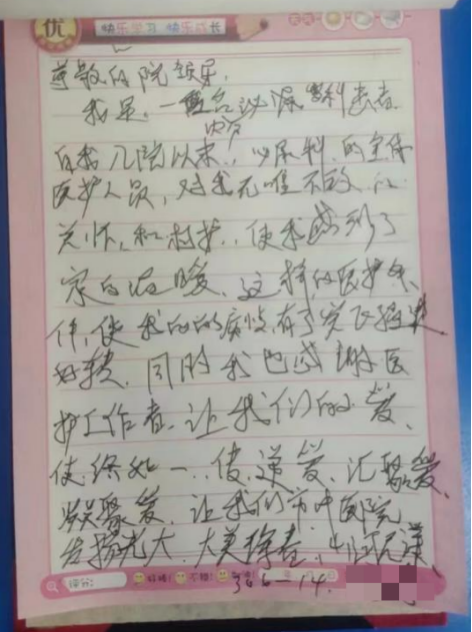 优
快乐学习 快乐成长
尊敬的院领导,
我是,一名泌尿科患者
内分
自我入院以来,泌尿科的全体
医护人员,对我无唯不致的
关怀,和村护,使我感到了
家的温暖,这样的医护条
件,使我的的病情,有了
好转,同时我也感谢医
护工作者,让我们的爱、
使终如一,传递爱,汇聚爱、
聚爱,让我们市中医院
发扬光大,大美
评分: 好棒! 不错!
366-14